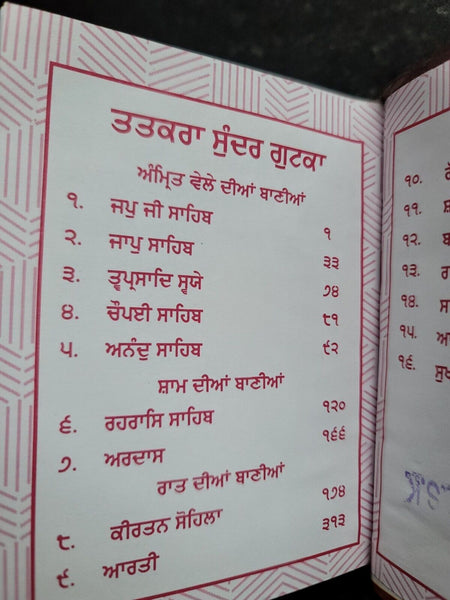 ਤਤਕਰਾ ਸੁੰਦਰ ਗੁਟਕਾ
ਅੰਮ੍ਰਿਤ ਵੇਲੇ ਦੀਆਂ ਬਾਣੀਆਂ
੧. ਜਪੁ ਜੀ ਸਾਹਿਬ ੧
੨. ਜਾਪੁ ਸਾਹਿਬ ੩੩
੩. ਤ੍ਵਪ੍ਰਸਾਦਿ ਸ੍ਵਯੇ ੭੪
੪. ਚੌਪਈ ਸਾਹਿਬ ੮੧
੫. ਅਨੰਦੁ ਸਾਹਿਬ ੯੨
ਸ਼ਾਮ ਦੀਆਂ ਬਾਣੀਆਂ
੬. ਰਹਰਾਸਿ ਸਾਹਿਬ ੧੨੦
੭. ਅਰਦਾਸ ੧੬੬
ਰਾਤ ਦੀਆਂ ਬਾਣੀਆਂ
੮. ਕੀਰਤਨ ਸੋਹਿਲਾ ੧੭੪
੯. ਆਰਤੀ ੩੧੩
੧੦.
੧੧.
੧੨.
੧੩.
੧੪.
੧੫.
੧੬.